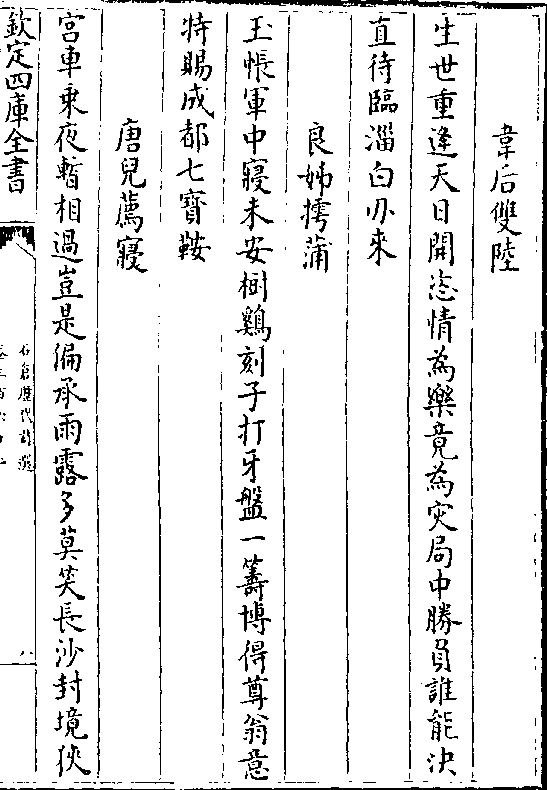 韋后雙陸
生世重逢天日開恣情為樂竟為灾局中勝負誰能决
直待臨淄白刃來
良娣摴蒲
玉帳軍中寢未安樹鷄刻子打牙盤一籌博得尊翁意
特賜成都七寳鞍
唐兒薦寢
宫車乘夜暫相過豈是偏承雨露多莫笑長沙封境狹
欽定四庫全書
石倉歷代詩選
八